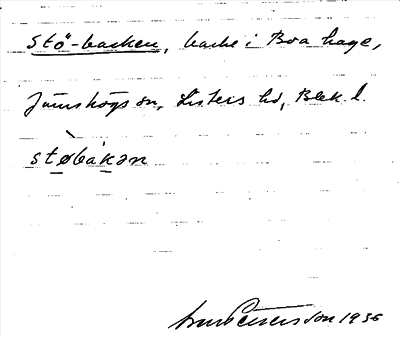 Stö-backen, backe i Boa hage,
Jämshögs sn, Listers hd, Blek. l.
støbakan
Petersson 1936